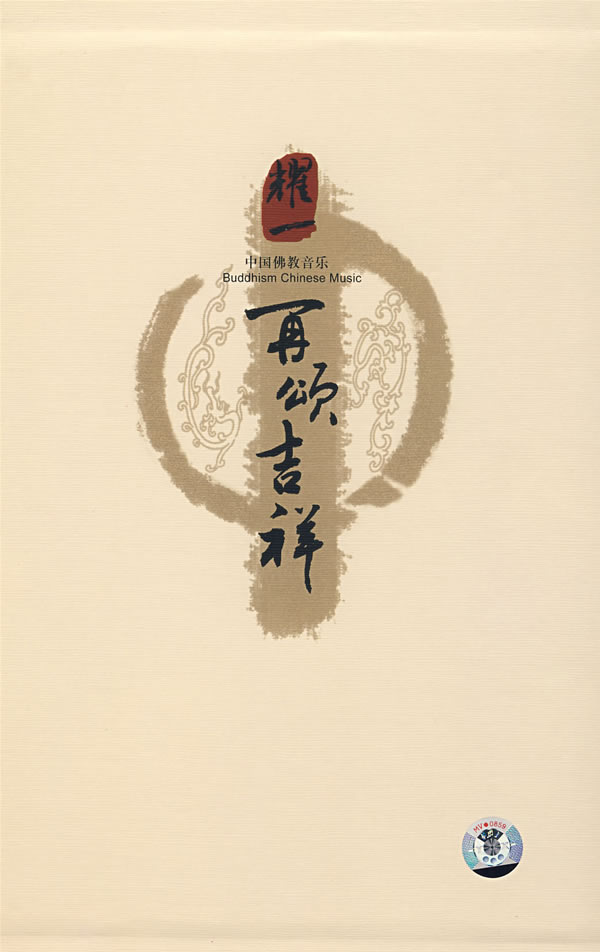 耀一
中国佛教音乐
Buddhism Chinese Music
再颂吉祥
MV●0859